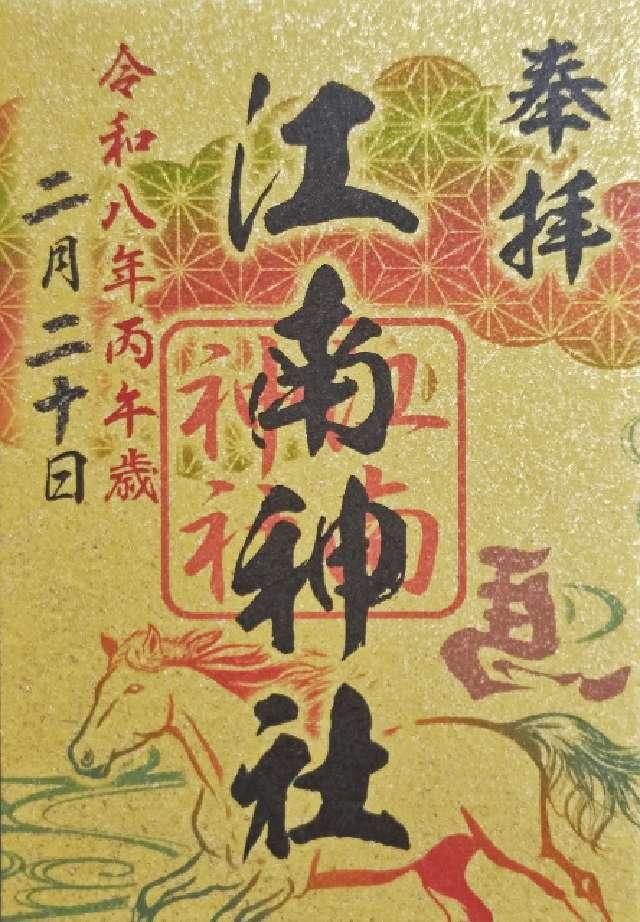 奉拝
江南神社
江南
神社
馬
令和八年丙午歳
二月二十日